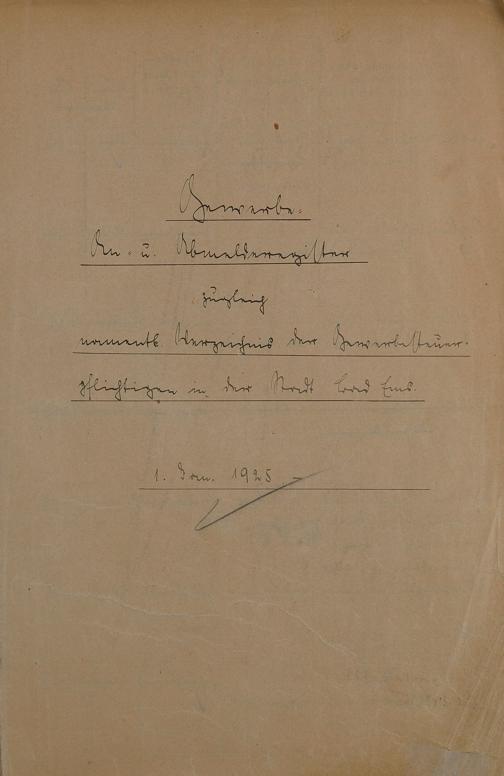 Gewerbe-
An- u. Abmelderegister
zugleich
namentl. Verzeichnis der Gewerbesteuer-
pflichtigen in der Stadt Bad Ems.
1. Jan. 1925 –